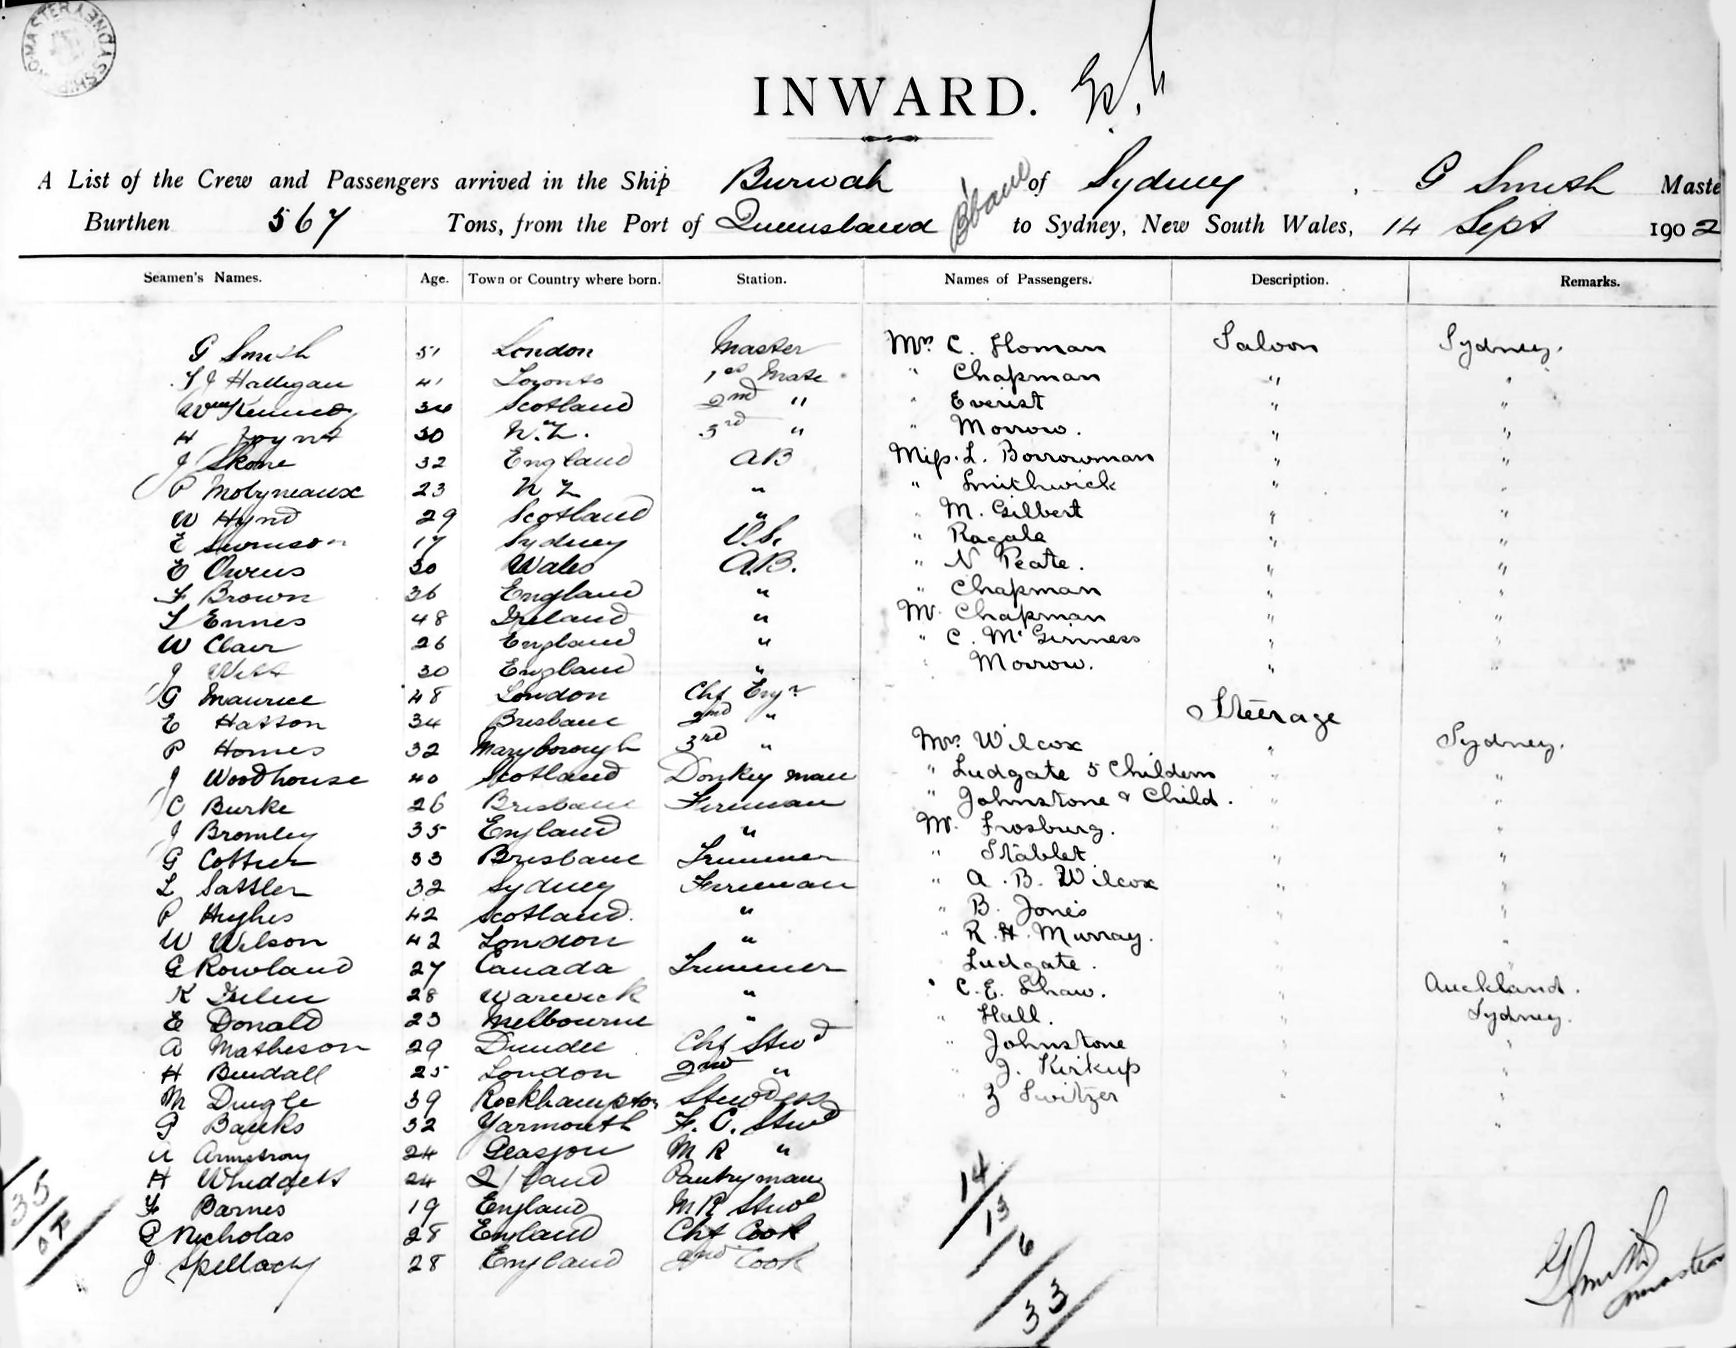 SHIPPING MASTER SYDNEY
INWARD.
A List of the Crew and Passengers arrived in the Ship Burwah B'bane of Sydney, G Smith Maste
Burthen 567 Tons, from the Port of Queensland to Sydney, New South Wales, 14 Sept 1902
Seamen's Names. Age. Town or Country where born. Station. Names of Passengers. Description. Remarks.
G Smith 51 London Master Mrs C. Homan Saloon Sydney.
T J Halligan 41 Toronto 1st Mate " Chapman " "
Wm Kennedy 34 Scotland 2nd " " Everist " "
H 30 N.Z. 3rd " " Morrow. " "
J Skone 32 England AB Miss. L. Borrowman " "
P Molyneaux 23 N Z " " Smithwick " "
W Hynd 29 Scotland " " M. Gilbert " "
E Swinson 17 Sydney O.S. " Ragale " "
E Owens 30 Wales A.B. " N Peate. " "
F Brown 36 England " " Chapman " "
T Ennes 48 Ireland " Mr Chapman " "
W Clair 26 England " " C. McGinness " "
J Witt 30 England " " Morrow. " "
G Maurice 48 London Chf Engr
E Hatton 34 Brisbane 2nd " Steerage
P Homes 32 Maryborough 3rd " Mrs. Wilcox " Sydney.
J Woodhouse 40 Scotland Donkeyman " Ludgate 5 Childern " "
C Burke 26 Brisbane Fireman " Johnstone & Child. " "
J Bromley 35 England " Mr. Frosburg. " "
G Cottier 33 Brisbane Trimmer " Stablet. " "
L Sattler 32 Sydney Fireman " A. B. Wilcox " "
P Hughes 42 Scotland. " " B. Jones " "
W Wilson 42 London " " R. H. Murray. " "
G Rowland 27 Canada Trimmer Ludgate. " "
K 28 Warwick " " C. E. Shaw. " Auckland.
E Donald 23 Melbourne " " Hall. " Sydney.
A Matheson 29 Dundee Chf Stwd " Johnstone " "
H Bendall 25 London 2nd " " J. Kirkup " "
M Dingle 39 Rockhampton Stwdess " Z Switzer "
G Banks 32 Yarmouth F. C. Stwd "
A Armstrong 24 Glasgow M R "
H Whidgett 24 Q'land Pantryman
F Barnes 19 England M R Stwd
G Nicholas 28 England Chf Cook
J Spellacy 28 England 2nd Cook
35
14
13
6
33
G Smith
Master